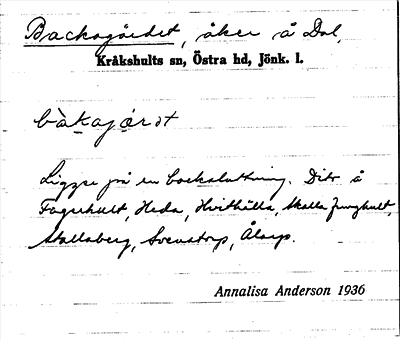 Backagärdet, åker å Dal,
Kråkshults sn, Östra hd, Jönk. l.
bàkajæ̀rət
Ligger på en backsluttning. Dito å
Fagerhult, Heda, Hvithälla, Skalla Junghult,
Stallaberg, Svenstorp, Ålarp.
Annalisa Anderson 1936